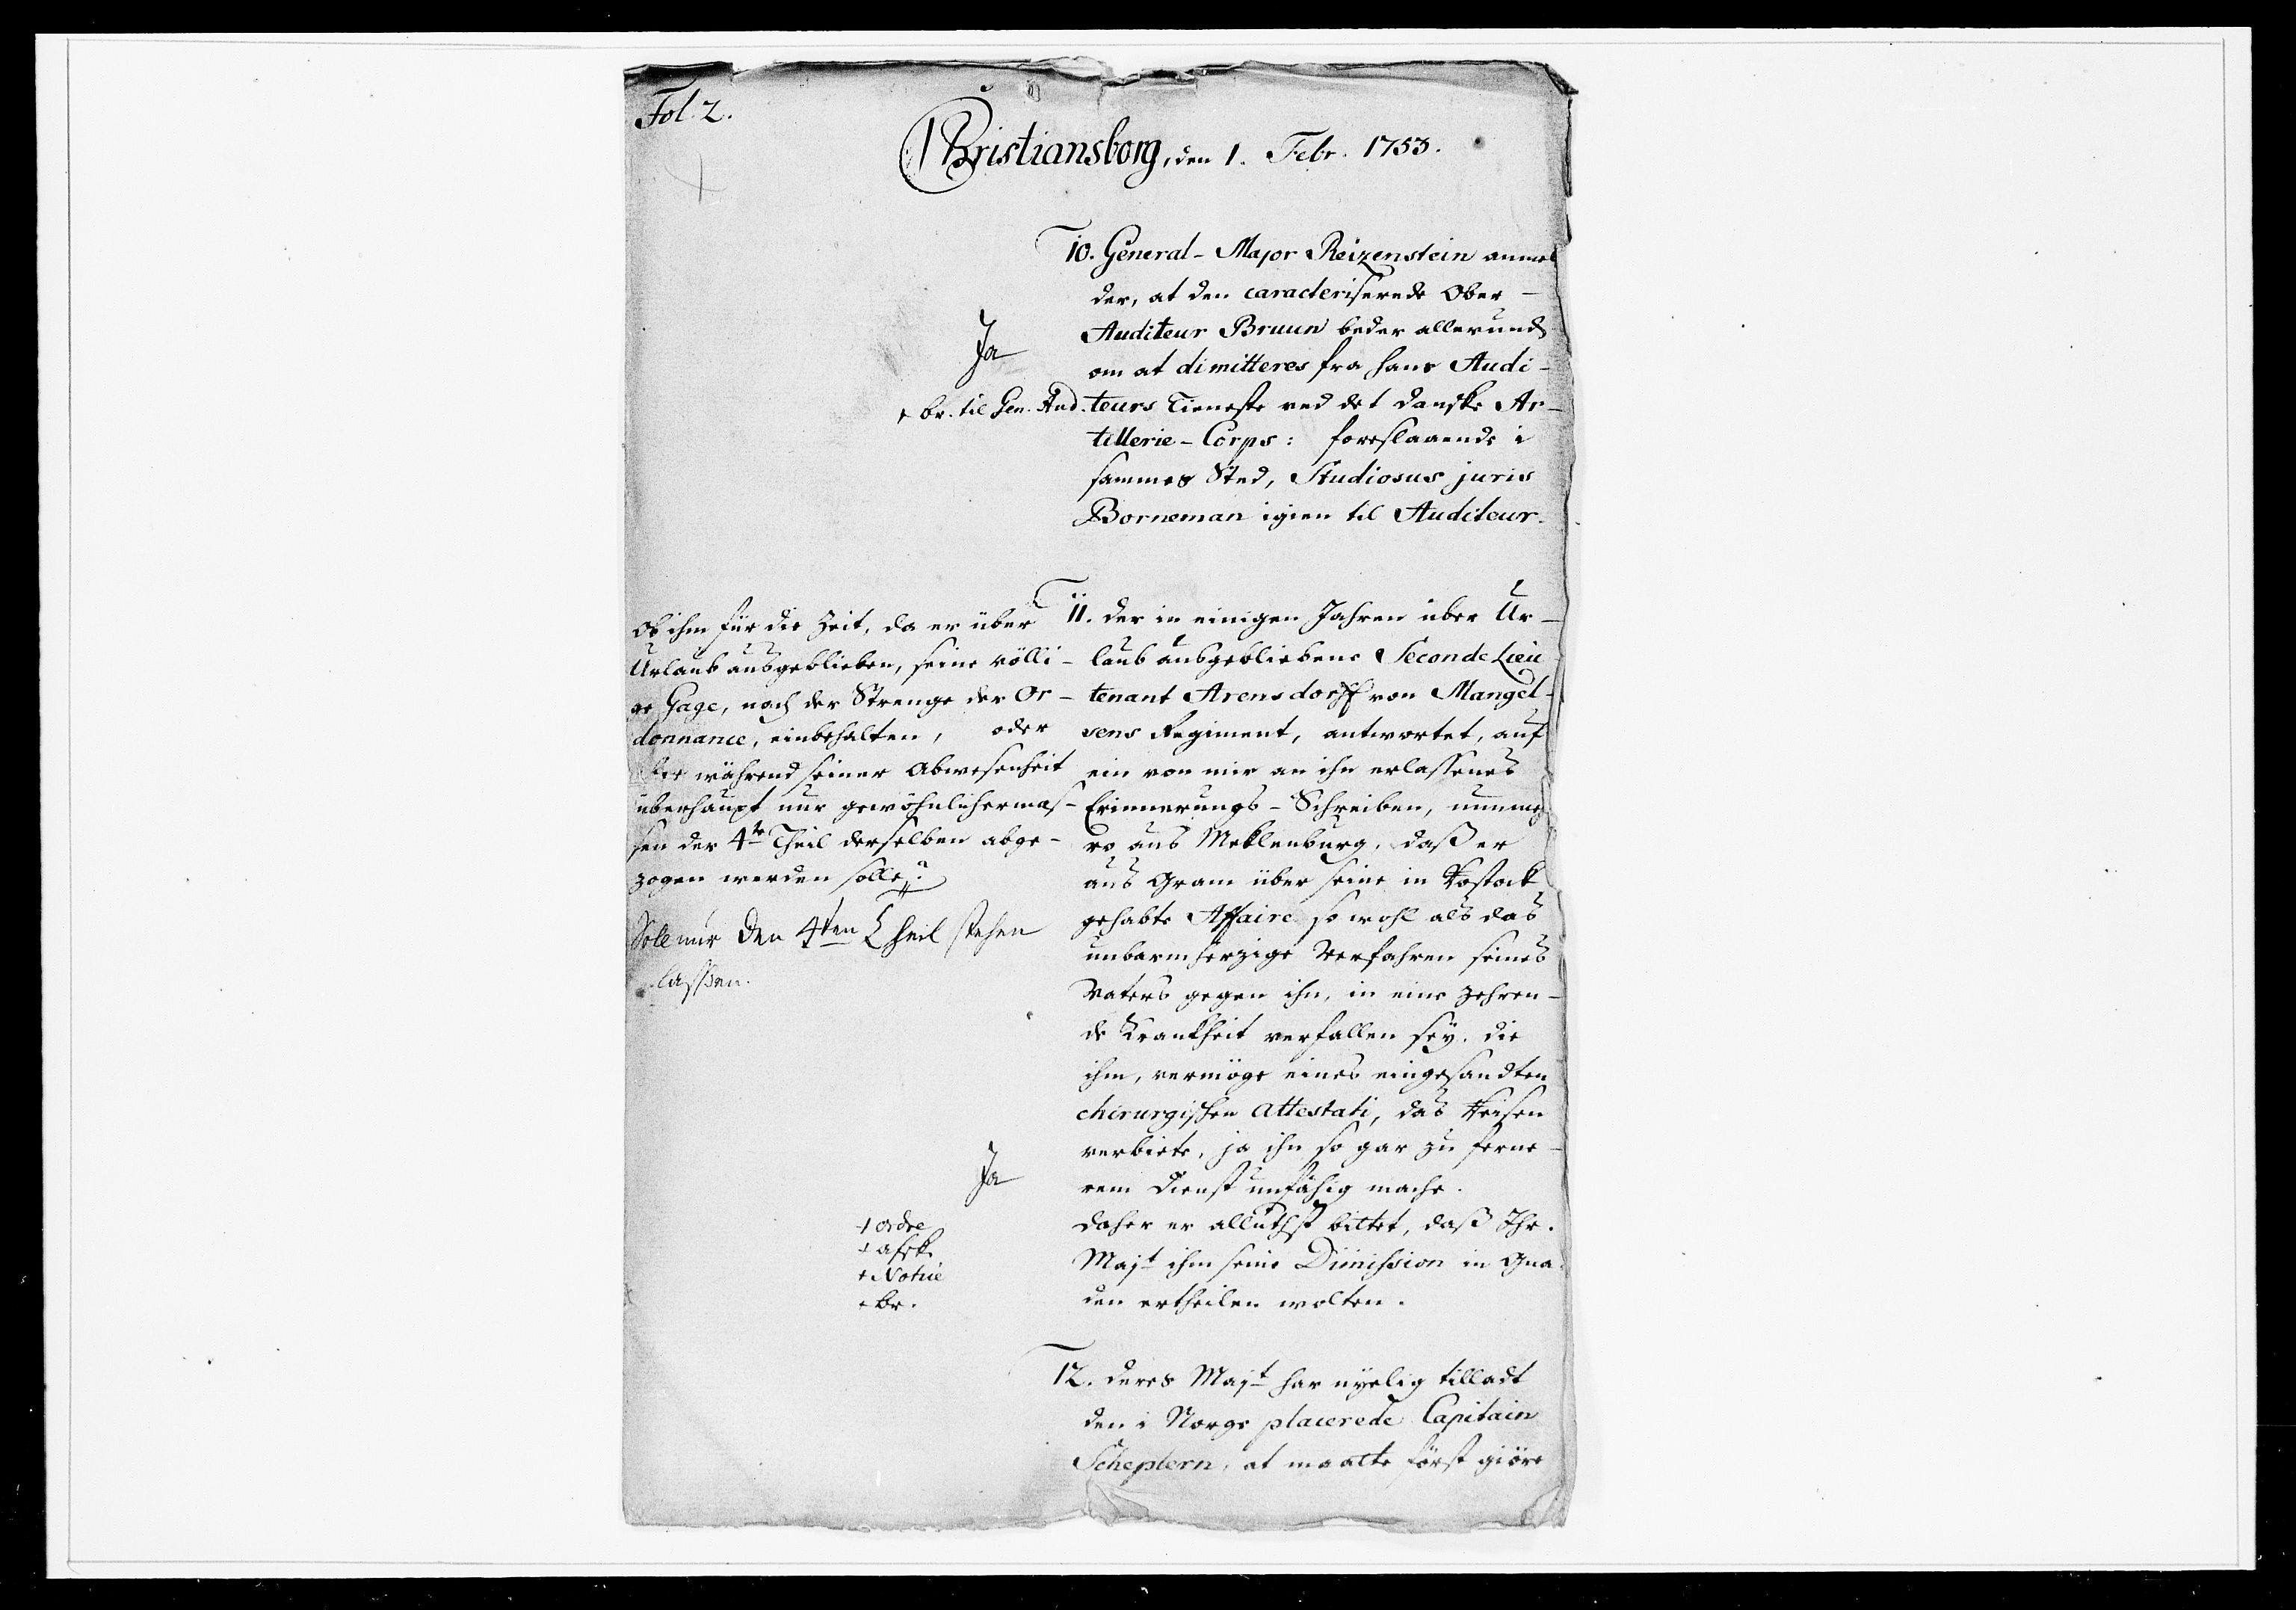 Fol. 2.
Christiansborg, den 1. Febr. 1753.
10. General-Major Reizenstein anmel
der, at den caracteriserede Ober-
Auditeur Bruun beder allerund
om at dimitteres fra hans Audi-
teurs Tieneste ved det danske Ar-
tillerie-Corps: foreslaaende i
sammes Sted, Studiosus juris
Borneman igien til Auditeur.
Ja
+ br. til Gen. Aud.
11. Der in einigen Jahren über Ur-
laub ausgebliebene Seconde Lieu
tenant Arensdorff von Mangel-
sens Regiment, antwortet, auf
ein von mir an ihn erlassenes
Erinnerungs-Schreiben, nunmeh
ro aus Meklenburg, daß er
aus Gram über seine in Rostock
gehabte Affaire so wohl als das
unbarmherzige Verfahren seines
Vaters gegen ihn, in eine zehren-
de Krankheit verfallen sey, die
ihm, vermöge eines eingesandten
chirurgischen Attestati, das Reisen
verbiete, ja ihn so gar zu ferne-
rem Dienst unfähig mache.
Daher er alluthst bittet, daß Ihr.
Majt ihm seine Dimission in Gna
den ertheilen wolten.
Ob ihm für die Zeit, da er über
Urlaub ausgeblieben, seine völli-
ge Gage, nach der Strenge der Or-
donnance, einbehalten, oder
während seiner Abwesenheit
überhaupt nur gewöhnlichermas-
sen der 4te Theil derselben abge-
zogen werden solle?
Soll nur den 4ten Theil stehen
lassen.
Ja
+ ordre
+ afsk.
+ Notice
+ br.
12. Deres Majt har nyelig tilladt
den i Norge placerede Capitain
Scheplern, at maatte først giöre